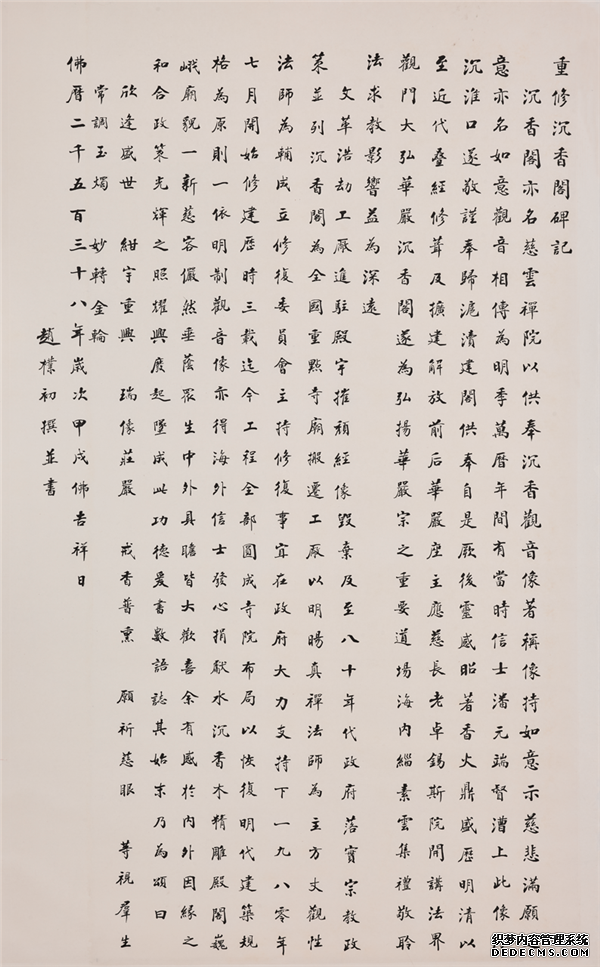 重修沉香閣碑記
沉香閣亦名慈雲禪院以供奉沉香觀音像著稱像持如意示慈悲滿願
意亦名如意觀音相傳為明季萬曆年間有當時信士潘元端督漕上此像
沉淮口遂敬謹奉歸滬瀆建閣供奉自是厥後靈感昭著香火鼎盛歷明清以
至近代叠經修葺及擴建解放前后華嚴座主應慈長老卓錫斯院開講法界
觀門大弘華嚴沉香閣遂為弘揚華嚴宗之重要道場海內緇素雲集禮敬聆
法求教影響益為深遠
文革浩劫工厰進駐殿宇摧頹經像毀棄及至八十年代政府落實宗教政
策並列沉香閣為全國重點寺廟搬遷工厰以明暘真禪法師為主方丈觀性
法師為輔成立修復委員會主持修復事宜在政府大力支持下一九八零年
七月開始修建歷時三載迄今工程全部圓成寺院布局以恢復明代建築規
格為原則一依明制觀音像亦得海外信士發心捐獻水沉香木精雕殿閣巍
峨廟貌一新慈容儼然垂蔭眾生中外具瞻皆大歡喜余有感於內外因緣之
和合政策光輝之照耀興廢起墜成此功德爰書數語誌其始末乃為頌曰
欣逢盛世 紺宇重興 瑞像莊嚴 戒香普熏 願祈慈眼 等視羣生
常調玉燭 妙轉金輪
佛曆二千五百三十八年歲次甲戌佛吉祥日
趙樸初撰並書
织梦内容管理系统
DEDECMS.COM